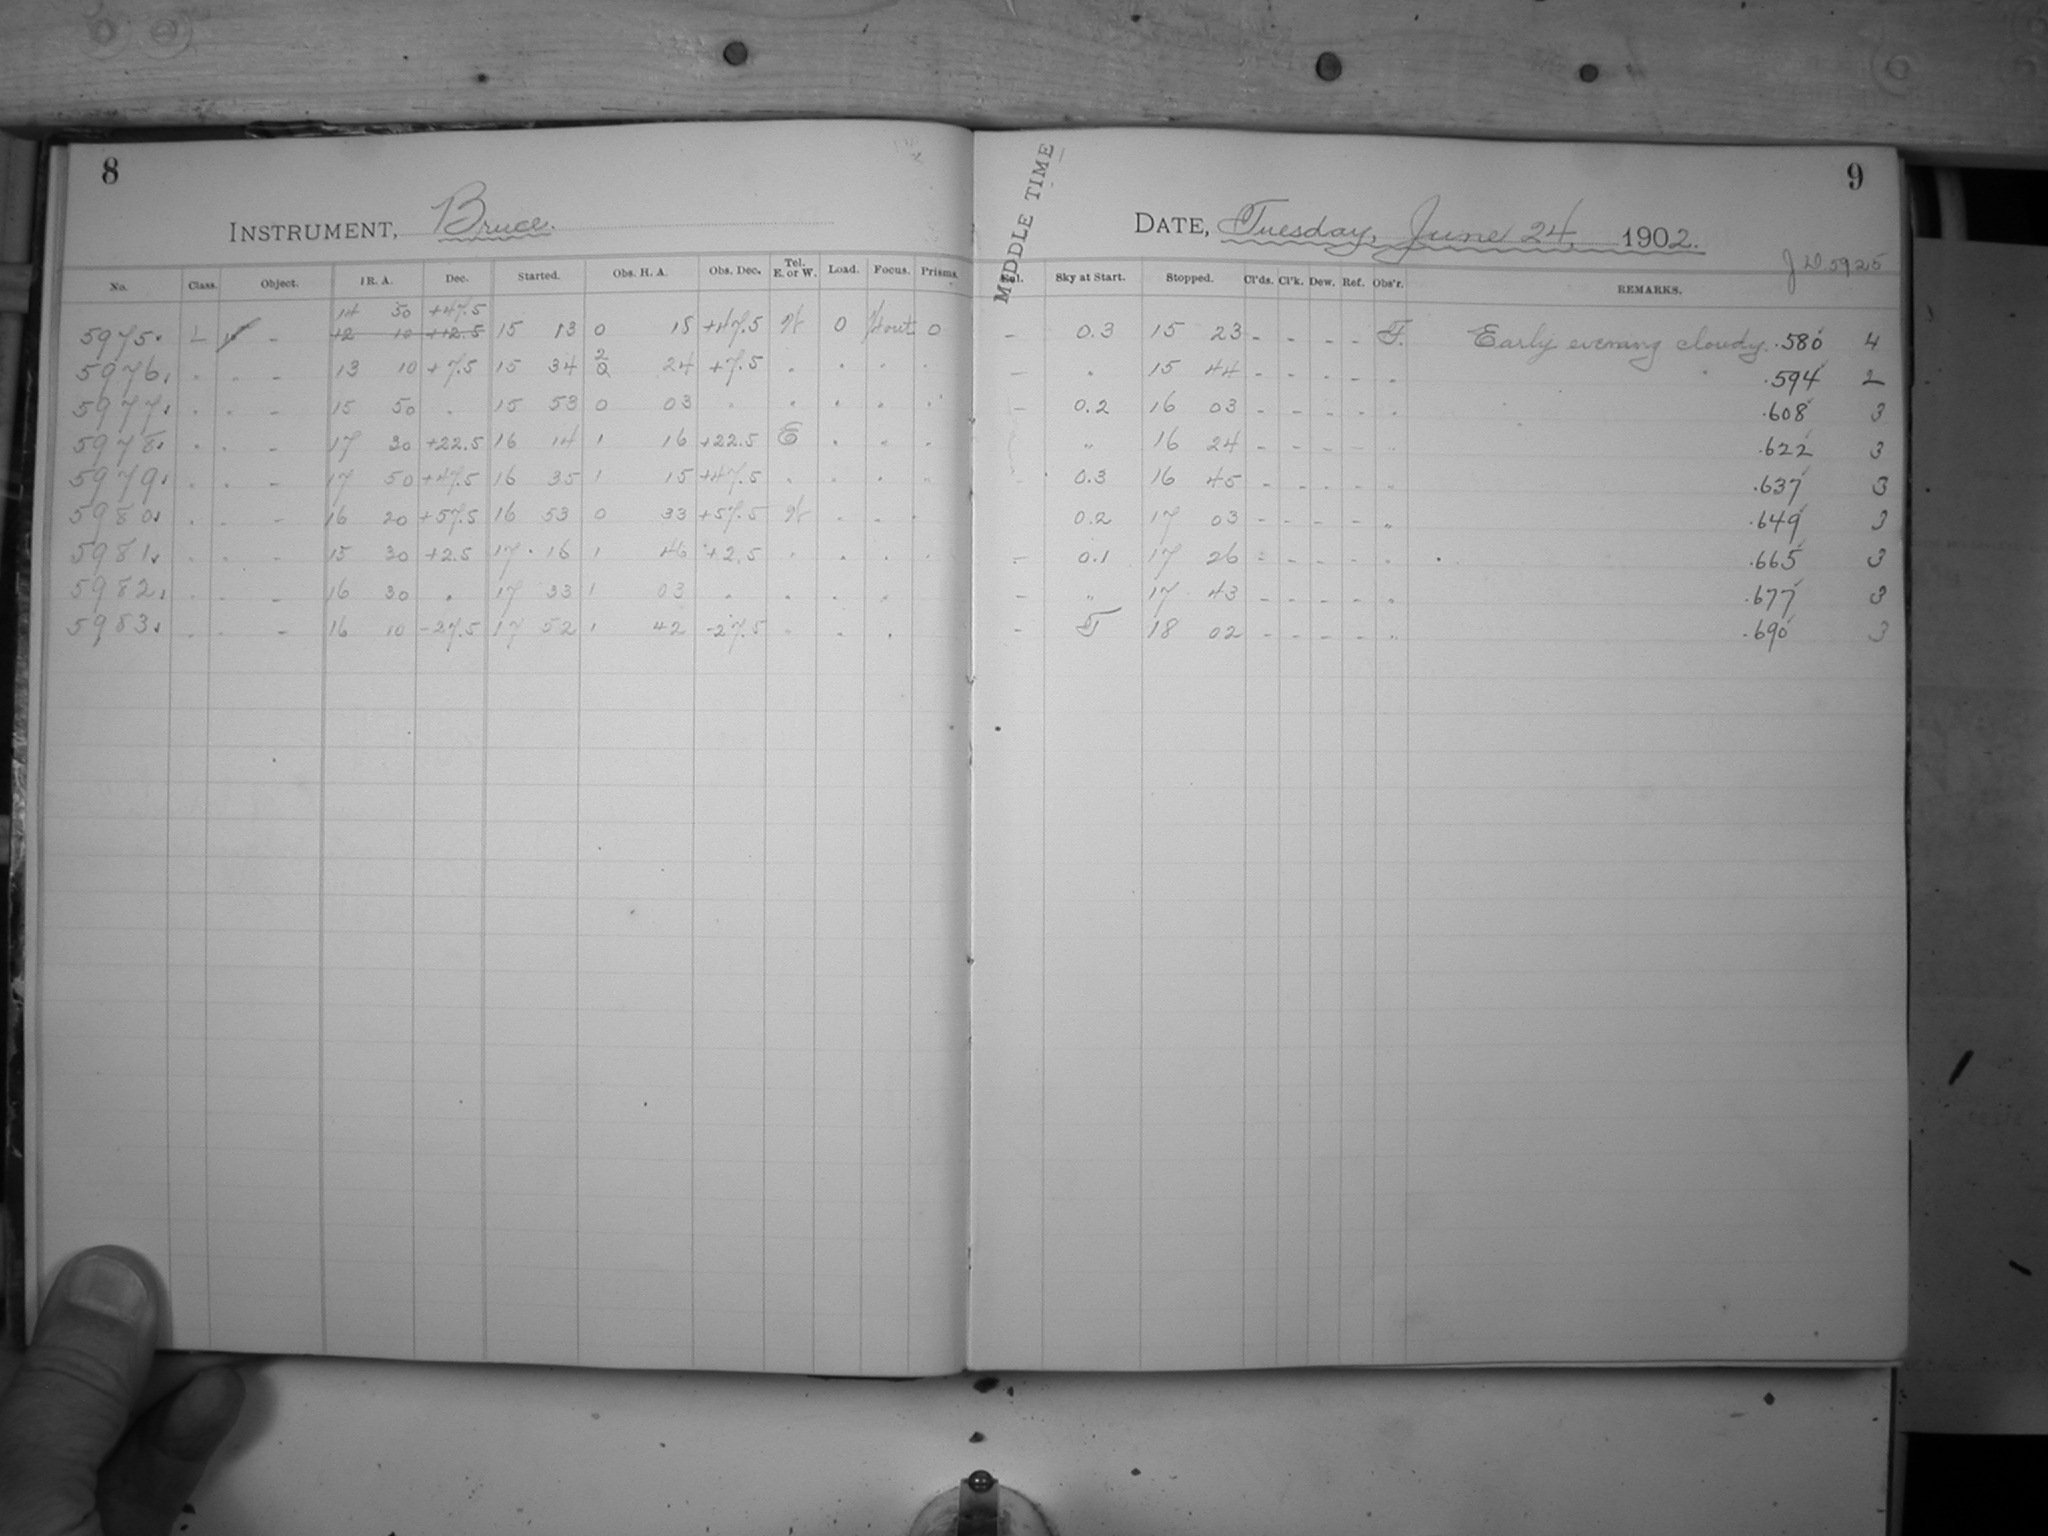 8
INSTRUMENT, Bruce.
No. Class. Object. R. A. Dec. Started. Obs. H. A. Obs. Dec. Tel. E. or W. Load. Focus. Prisms.
14 50 +47.5
5975. L - 12 10 ++2.5 15 13 0 18 +47.5 W 0 0
5976. . . - 13 10 +7.5 15 34 2 24 +7.5 . . . .
5977. . . - 15 50 . 15 53 0 03 . . . . .
5978. . . - 17 30 +22.5 16 14 1 16 +22.5 E . . .
5979. . . - 17 50 +47.5 16 35 1 15 +47.5 . . . .
5980. . . - 16 20 +57.5 16 53 0 33 +57.5 W . . .
5981. . . - 15 30 +2.5 17 16 1 46 +2.5 . . . .
5982. . . - 16 30 . 17 33 1 03 . . . .
5983. . . - 16 10 -27.5 17 52 1 42 -27.5 . . .
9
MIDDLE TIME
DATE, Tuesday, June 24, 1902.
J D. 5925
Sky at Start. Stopped. Cl'ds. Cl'k. Dew. Ref. Obs'r. REMARKS.
- 0.3 15 23 - - - - F. Early evening cloudy. .580 4
- " 15 44 - - - - " .594 2
- 0.2 16 03 - - - - " .608 3
" 16 24 - - - - " .622 3
0.3 16 45 - - - - " .637 3
0.2 17 03 - - - - " .649 3
- 0.1 17 26 - - - - " .665 3
- " 17 43 - - - - " .677 3
- F 18 02 - - - - " .690 3